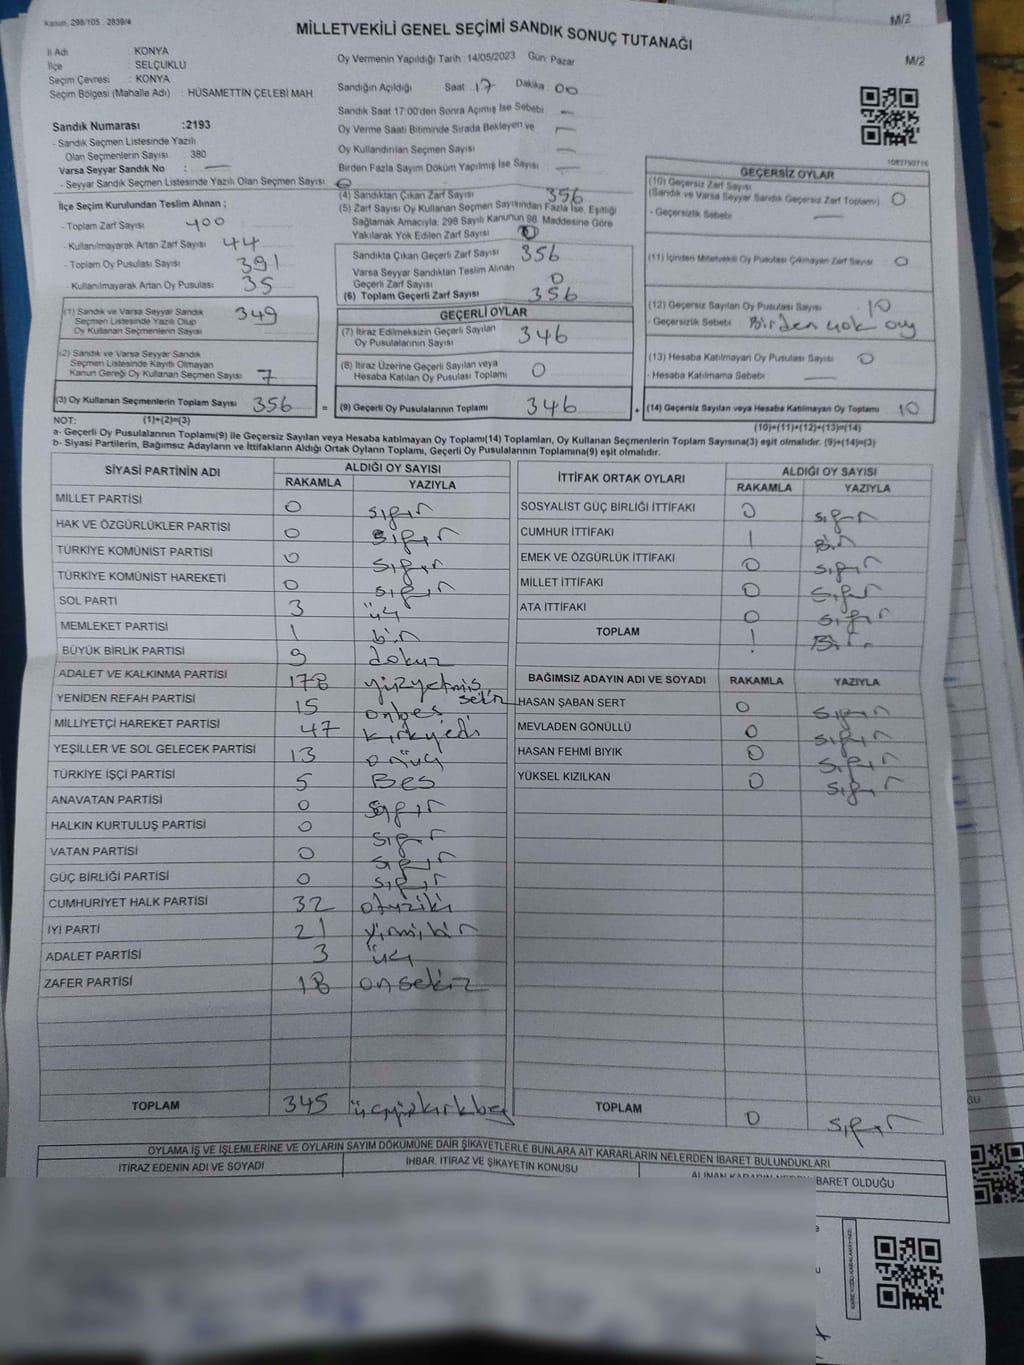 Kanun, 298/105 : 2839/4
M/2
MİLLETVEKİLİ GENEL SEÇİMİ SANDIK SONUÇ TUTANAĞI
M/2
İl Adı : KONYA
İlçe : SELÇUKLU
Seçim Çevresi : KONYA
Seçim Bölgesi (Mahalle Adı) : HÜSAMETTİN ÇELEBİ MAH.
Oy Vermenin Yapıldığı Tarih : 14/05/2023 Gün: Pazar
Sandığın Açıldığı Saat : 17 Dakika : 00
Sandık Saat 17:00'den Sonra Açımış İse Sebebi : —
Oy Verme Saati Bitiminde Sırada Bekleyen ve
Oy Kullandırılan Seçmen Sayısı : —
Birden Fazla Sayım Döküm Yapılmış İse Sayısı : —
Sandık Numarası :2193
- Sandık Seçmen Listesinde Yazılı
Olan Seçmenlerin Sayısı : 380
Varsa Seyyar Sandık No : —
- Seyyar Sandık Seçmen Listesinde Yazılı Olan Seçmen Sayısı :
İlçe Seçim Kurulundan Teslim Alınan ;
- Toplam Zarf Sayısı : 400
- Kullanılmayarak Artan Zarf Sayısı : 44
- Toplam Oy Pusulası Sayısı : 391
- Kullanılmayarak Artan Oy Pusulası : 35
(1) Sandık ve Varsa Seyyar Sandık
Seçmen Listesinde Yazılı Olup
Oy Kullanan Seçmenlerin Sayısı : 349
(2) Sandık ve Varsa Seyyar Sandık
Seçmen Listesinde Kayıtlı Olmayan
Kanun Gereği Oy Kullanan Seçmen Sayısı : 7
(3) Oy Kullanan Seçmenlerin Toplam Sayısı : 356
(4) Sandıktan Çıkan Zarf Sayısı : 356
(5) Zarf Sayısı Oy Kullanan Seçmen Sayısından Fazla İse, Eşitliği
Sağlamak Amacıyla, 298 Sayılı Kanunun 98. Maddesine Göre
Yakılarak Yok Edilen Zarf Sayısı : 0
Sandıkta Çıkan Geçerli Zarf Sayısı : 356
Varsa Seyyar Sandıktan Teslim Alınan
Geçerli Zarf Sayısı : 0
(6) Toplam Geçerli Zarf Sayısı : 356
GEÇERLİ OYLAR
(7) İtiraz Edilmeksizin Geçerli Sayılan
Oy Pusulalarının Sayısı : 346
(8) İtiraz Üzerine Geçerli Sayılan veya
Hesaba Katılan Oy Pusulası Toplamı : 0
= (9) Geçerli Oy Pusulalarının Toplamı : 346
1083790716
GEÇERSİZ OYLAR
(10) Geçersiz Zarf Sayısı
(Sandık ve Varsa Seyyar Sandık Geçersiz Zarf Toplamı) : 0
- Geçersizlik Sebebi : —
(11) İçinden Milletvekili Oy Pusulası Çıkmayan Zarf Sayısı : 0
(12) Geçersiz Sayılan Oy Pusulası Sayısı : 10
- Geçersizlik Sebebi : Birden çok oy
(13) Hesaba Katılmayan Oy Pusulası Sayısı : 0
- Hesaba Katılmama Sebebi : —
+ (14) Geçersiz Sayılan veya Hesaba Katılmayan Oy Toplamı : 10
NOT: (1)+(2)=(3)
(10)+(11)+(12)+(13)=(14)
a- Geçerli Oy Pusulalarının Toplamı(9) ile Geçersiz Sayılan veya Hesaba katılmayan Oy Toplamı(14) Toplamları, Oy Kullanan Seçmenlerin Toplam Sayısına(3) eşit olmalıdır. (9)+(14)=(3)
b- Siyasi Partilerin, Bağımsız Adayların ve İttifakların Aldığı Ortak Oyların Toplamı, Geçerli Oy Pusulalarının Toplamına(9) eşit olmalıdır.
SİYASİ PARTİNİN ADI ALDIĞI OY SAYISI
RAKAMLA YAZIYLA
MİLLET PARTİSİ 0 sıfır
HAK VE ÖZGÜRLÜKLER PARTİSİ 0 sıfır
TÜRKİYE KOMÜNİST PARTİSİ 0 sıfır
TÜRKİYE KOMÜNİST HAREKETİ 0 sıfır
SOL PARTİ 3 üç
MEMLEKET PARTİSİ 1 bir
BÜYÜK BİRLİK PARTİSİ 9 dokuz
ADALET VE KALKINMA PARTİSİ 178 yüzyetmiş sekiz
YENİDEN REFAH PARTİSİ 15 onbeş
MİLLİYETÇİ HAREKET PARTİSİ 47 kırkyedi
YEŞİLLER VE SOL GELECEK PARTİSİ 13 onüç
TÜRKİYE İŞÇİ PARTİSİ 5 Beş
ANAVATAN PARTİSİ 0 sıfır
HALKIN KURTULUŞ PARTİSİ 0 sıfır
VATAN PARTİSİ 0 sıfır
GÜÇ BİRLİĞİ PARTİSİ 0 sıfır
CUMHURİYET HALK PARTİSİ 32 otuziki
İYİ PARTİ 21 yirmibir
ADALET PARTİSİ 3 üç
ZAFER PARTİSİ 18 onsekiz
TOPLAM 345 üçyüzkırkbeş
İTTİFAK ORTAK OYLARI ALDIĞI OY SAYISI
RAKAMLA YAZIYLA
SOSYALİST GÜÇ BİRLİĞİ İTTİFAKI 0 sıfır
CUMHUR İTTİFAKI 1 Bir
EMEK VE ÖZGÜRLÜK İTTİFAKI 0 sıfır
MİLLET İTTİFAKI 0 sıfır
ATA İTTİFAKI 0 sıfır
TOPLAM 1 Bir
BAĞIMSIZ ADAYIN ADI VE SOYADI RAKAMLA YAZIYLA
HASAN ŞABAN SERT 0 sıfır
MEVLADEN GÖNÜLLÜ 0 sıfır
HASAN FEHMİ BIYIK 0 sıfır
YÜKSEL KIZILKAN 0 sıfır
TOPLAM 0 sıfır
OYLAMA İŞ VE İŞLEMLERİNE VE OYLARIN SAYIM DÖKÜMÜNE DAİR ŞİKAYETLERLE BUNLARA AİT KARARLARIN NELERDEN İBARET BULUNDUKLARI
İTİRAZ EDENİN ADI VE SOYADI İHBAR, İTİRAZ VE ŞİKAYETİN KONUSU ALINAN KARARIN NEDEN İBARET OLDUĞU